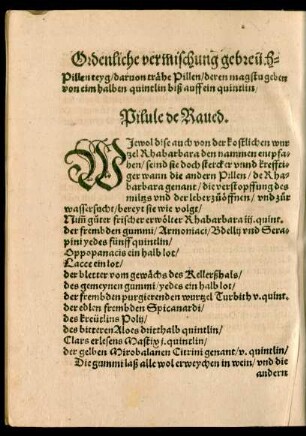 Ordenliche vermischung gebreü h-
Pillen teyg / daruon trähe Pillen / deren magstu geben
von eim halben quintlin biß auff ein quintlin /
Pilule de Raued.
WIewol dise auch von der kostlichen wur
tzel Rhabarbara den nammen empfa-
hen / seind sie doch stercker vnnd krefftí-
ger wann die andern Pillen / de Rha-
barbara genant / die verstopffung des
miltzs vnd der leber zůöffnen / vnd zůr
wassersucht / bereyt sie wie volgt /
Niñ gůter frischer erwölter Rhabarbara iij. quint.
der frembden gummi / Armoniaci / Bdellij vnd Sera-
pini yedes fünff quintlin /
Oppopanacis ein halb lot /
Lacce ein lot /
der bletter vom gewächs des Kellerßhals /
des gemeynen gummi / yedes ein halb lot /
der frembden purgierenden wurtzel Turbith v. quint.
der edlen frembden Spicanardi /
des kreütlins Polij /
des bitteren Aloes dütthalb quintlin /
Clars erlesens Mastix j. quintlin /
der gelben Mirobalanen Citrini genant / v. quintlin /
Die gummi laß alle wol erweychen in wein / vnd die
andern